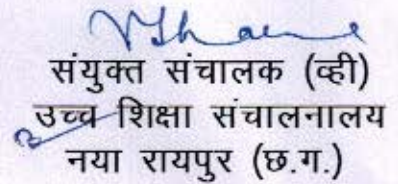 संयुक्त संचालक (व्ही)
उच्च शिक्षा संचालनालय
नया रायपुर (छ.ग.)